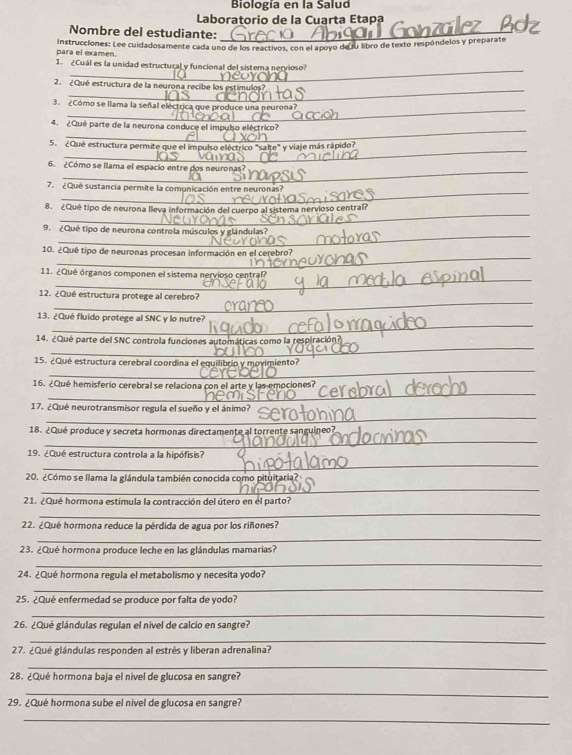 Biología en la Salud
Laboratorio de la Cuarta Etapa
Nombre del estudiante: Grecia Abigail González Bdz
Instrucciones: Lee cuidadosamente cada uno de los reactivos, con el apoyo de tu libro de texto respóndelos y preparate
para el examen.
1. ¿Cuál es la unidad estructural y funcional del sistema nervioso?
la neurona
2. ¿Qué estructura de la neurona recibe los estímulos?
las dendritas
3. ¿Cómo se llama la señal eléctrica que produce una neurona?
Potencial de acción
4. ¿Qué parte de la neurona conduce el impulso eléctrico?
el axón
5. ¿Qué estructura permite que el impulso eléctrico "salte" y viaje más rápido?
las vainas de mielina
6. ¿Cómo se llama el espacio entre dos neuronas?
Sinapsis
7. ¿Qué sustancia permite la comunicación entre neuronas?
los neurotrasmisores
8. ¿Qué tipo de neurona lleva información del cuerpo al sistema nervioso central?
Neuronas sensoriales
9. ¿Qué tipo de neurona controla músculos y glándulas?
Neuronas motoras
10. ¿Qué tipo de neuronas procesan información en el cerebro?
interneuronas
11. ¿Qué órganos componen el sistema nervioso central?
ensefalo y la medula espinal
12. ¿Qué estructura protege al cerebro?
craneo
13. ¿Qué fluido protege al SNC y lo nutre?
liquido cefalorraquideo
14. ¿Qué parte del SNC controla funciones automáticas como la respiración?
bulbo raquideo
15. ¿Qué estructura cerebral coordina el equilibrio y movimiento?
cerebelo
16. ¿Qué hemisferio cerebral se relaciona con el arte y las emociones?
hemisferio cerebral derecho
17. ¿Qué neurotransmisor regula el sueño y el ánimo?
serotonina
18. ¿Qué produce y secreta hormonas directamente al torrente sanguíneo?
glandulas endocrinas
19. ¿Qué estructura controla a la hipófisis?
hipotalamo
20. ¿Cómo se llama la glándula también conocida como pituitaria?
hipofisis
21. ¿Qué hormona estimula la contracción del útero en el parto?
22. ¿Qué hormona reduce la pérdida de agua por los riñones?
23. ¿Qué hormona produce leche en las glándulas mamarias?
24. ¿Qué hormona regula el metabolismo y necesita yodo?
25. ¿Qué enfermedad se produce por falta de yodo?
26. ¿Qué glándulas regulan el nivel de calcio en sangre?
27. ¿Qué glándulas responden al estrés y liberan adrenalina?
28. ¿Qué hormona baja el nivel de glucosa en sangre?
29. ¿Qué hormona sube el nivel de glucosa en sangre?